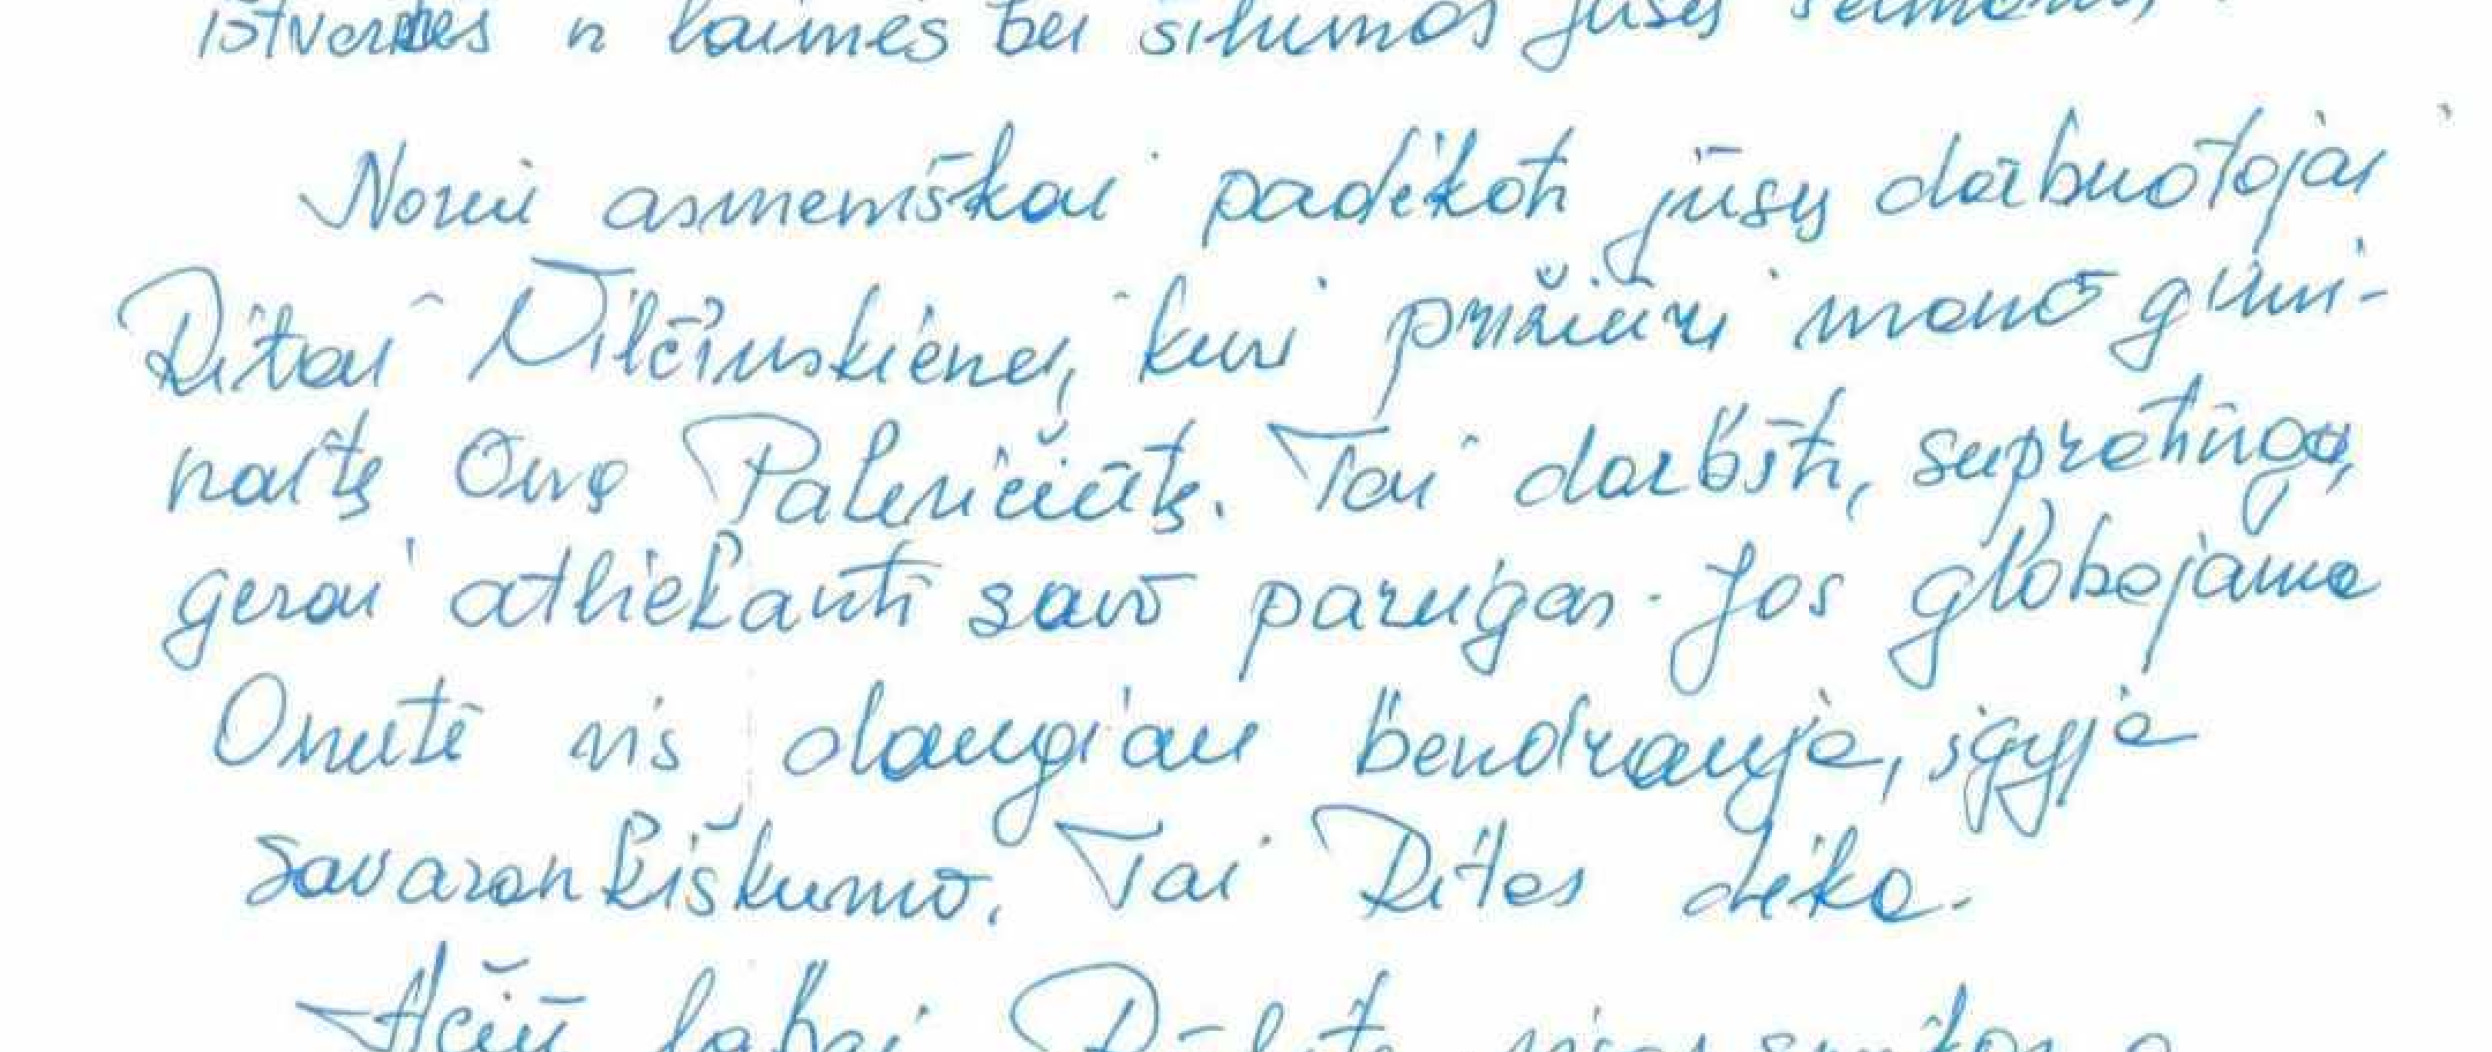 ištvermės ir laimės bei šilumos jūsų šeimoms,
Noriu asmeniškai padėkoti jūsų darbuotojai
Ritai Vilčinskienei, kuri prižiūri mano gimi-
naitę Onę Palevičiūtę. Tai darbšti, supratinga,
gerai atliekanti savo pareigas. Jos globojama
Onutė vis daugiau bendrauja, įgyja
savarankiškumo. Tai Ritos dėka.
Ačiū labai